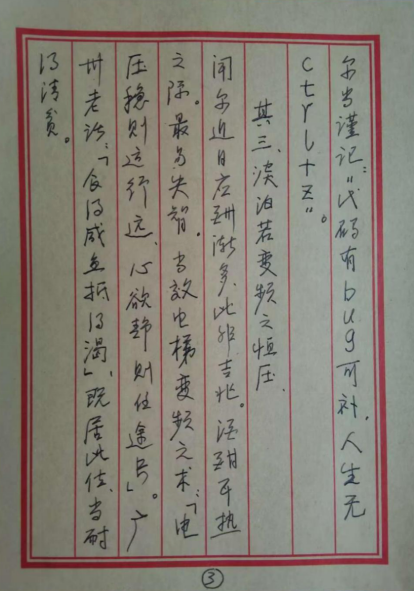 尔当谨记："代码有bug可补，人生无
ctrl+z"。
其三、淡泊若变频之恒压.
闻尔近日应酬渐多，此非吉兆。酒酣耳热
之际。最易失智。当效电梯变频之术："电
压稳则运行远、心欲静则仕途长"。广
州老话：「食得咸鱼抵得渴」、既居此位、当耐
得清贫。
③